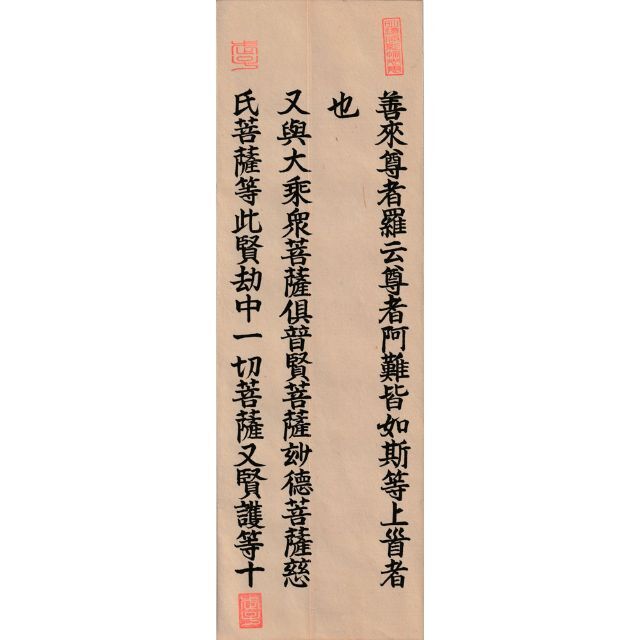 善來尊者羅云尊者阿難皆如斯等上首者
也
又與大乘衆菩薩俱普賢菩薩妙德菩薩慈
氏菩薩等此賢劫中一切菩薩又賢護等十